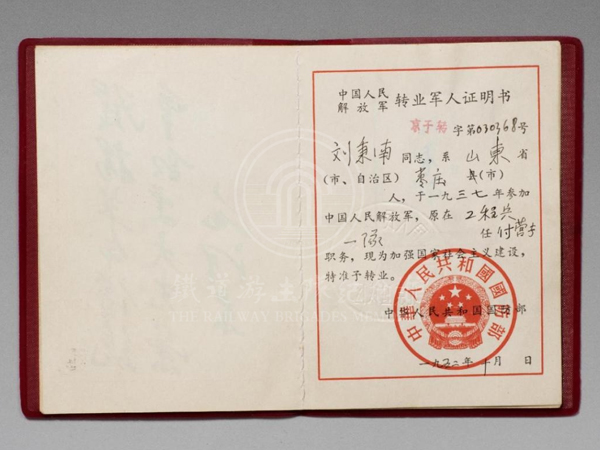 中国人民
解放军 转业军人证明书
字第030368号
刘秉南 同志，系 山東 省
（市、自治区） 枣庄 县（市）
人，于一九三七年参加
中国人民解放军，原在 工程兵
一 任 付营长
职务，现为加强国家社会主义建设，
特准予转业。
中华人民共和国国防部
中華人民共和國國防部
一九五二年 十月 日
THE RAILWAY BRIGADES